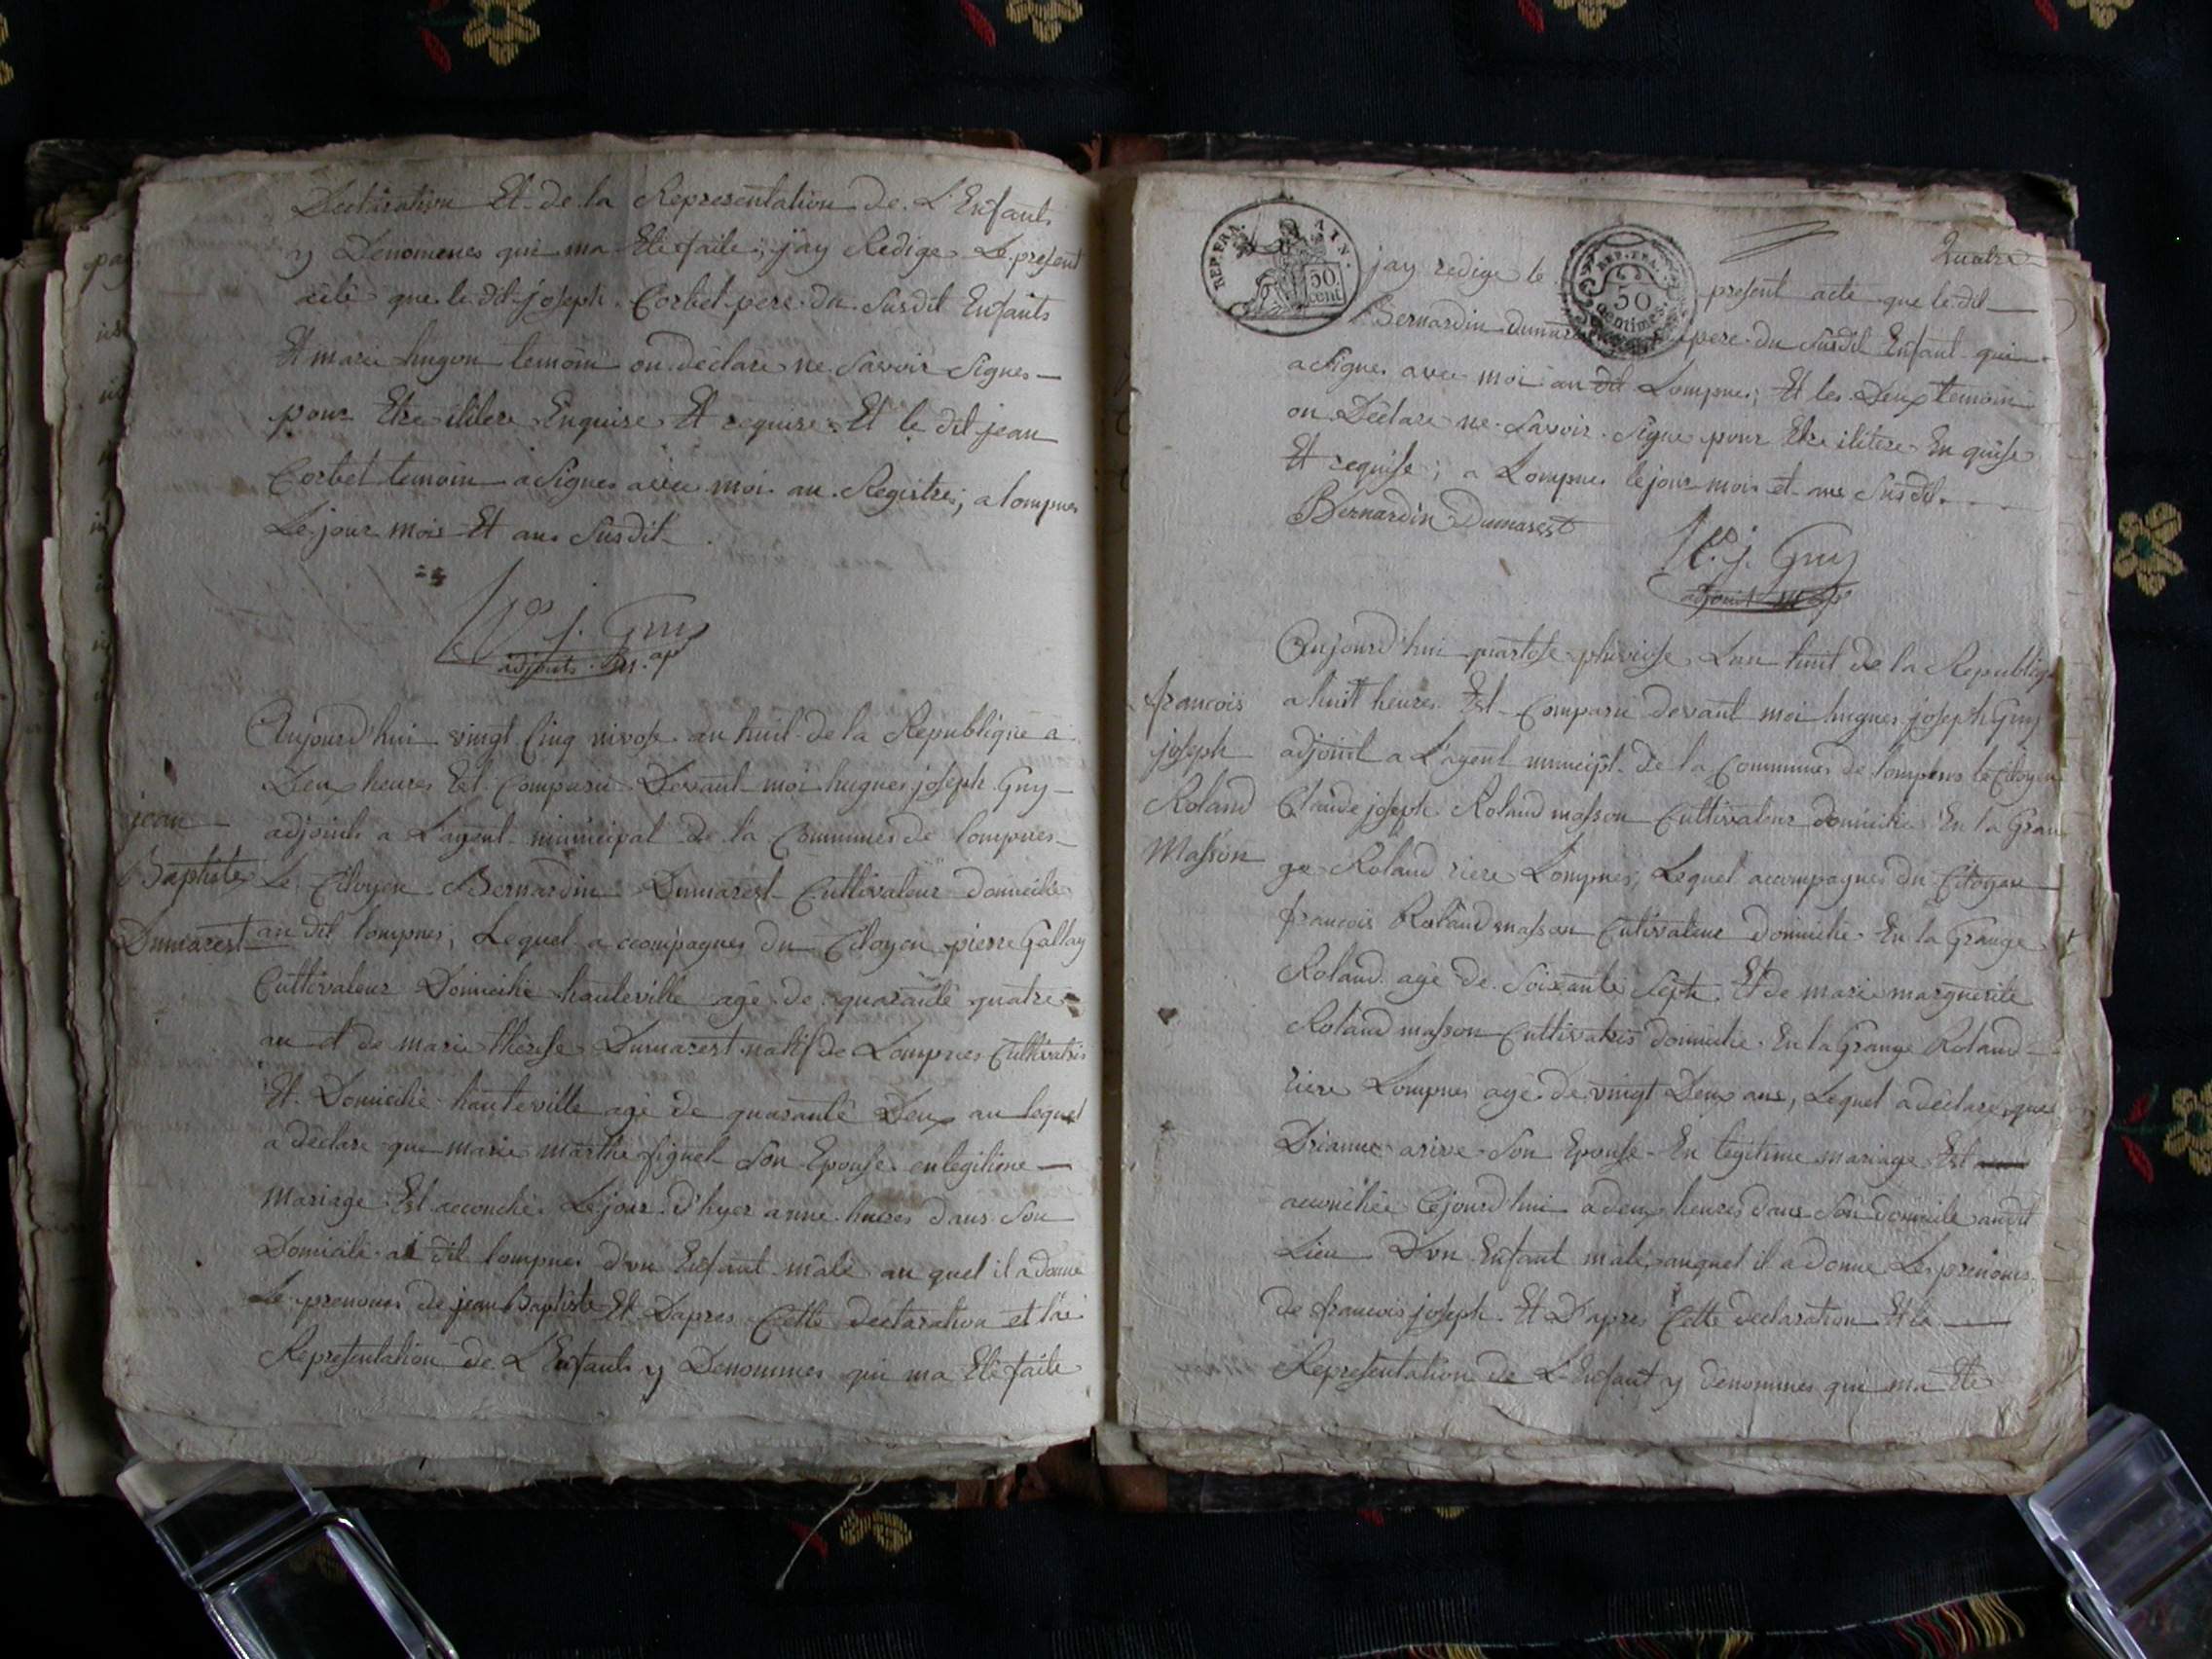 Declaration Et de la Representation de L'Enfants
y Denommes qui ma Ete faite, j'ay Redige Le present
acte que le dit joseph Corbet pere du susdit Enfants
Et marie hugon temoin on declare ne savoir signes
pour Etre ilitere Enquise Et requise Et le dit jean
Corbet temoin a signes avec moi au Registres, a lompnes
Le jour mois Et ans susdit
j. Guy
adjoint
jean
Baptiste
Dumarest
Aujourd'hui vingt Cinq nivose an huit de la Republique a
Deux heures Est Comparu Devant moi hugues joseph Guy
adjoints a L'agent municipal de la Communes de lompnes
Le Citoyen Bernardin Dumarest Cultivateur domicilie
au dit lompnes, Lequel accompagnes du Citoyen pierre Gallay
Cultivateur Domicilie hauteville age de quarante quatre
an et de marie therese Dumarest natif de Lompnes Cultivatris
Et Domicilie hauteville age de quarante Deux an lequel
a declare que marie marthe figuet son Epouse en legitime
mariage Est accouche Le jour d'hyer a onne hueres dans son
Domicile au dit lompnes d'un Enfant male au quel il a donne
Le prenoms de jean Baptiste Et Dapres Cette declaration et la
Representation de L'Enfants y Denommes qui ma Ete faite
Quatre
REP. FRA.
AIN.
50 cent
REP. FRA.
50 centimes
jay redige le present acte que le dit
Bernardin dumarest pere du susdit Enfant qui
a signes avec moi au dit Lompnes; Et les Deux temoin
on Declare ne savoir signe pour Etre ilitere En quise
Et requise; a Lompnes le jour mois et ans susdit
Bernardin Dumarest
j. Guy
adjoint
francois
joseph
Roland
Masson
Aujourd'hui quartose pluviose L'an huit de la Republique
a huit heures Est Comparu devant moi hugues joseph Guy
adjoint a L'agent municipl de la Communes de lompnes le Citoyen
Claude joseph Roland masson Cultivateur domicilie En la Gran
ge Roland riere Lompnes, Lequel accompagnes du Citoyen
francois Roland masson Cultivateur domicilie En la Grange
Roland age de soixante sept Et de marie marguerite
Roland masson Cultivatris domicilie En la Grange Roland
riere Lompnes age de vingt Deux ans, Lequel a declare que
Drianne arive son Epouse En legitime mariage Est
accouchee Cejourd'hui a deux heures dans son domicile audit
Lieu D'un Enfant male, auquel il a donne Les prenoms
de francois joseph Et D'apres Cette declaration Et la
Representation de L'Enfant y denommes qui ma Ete